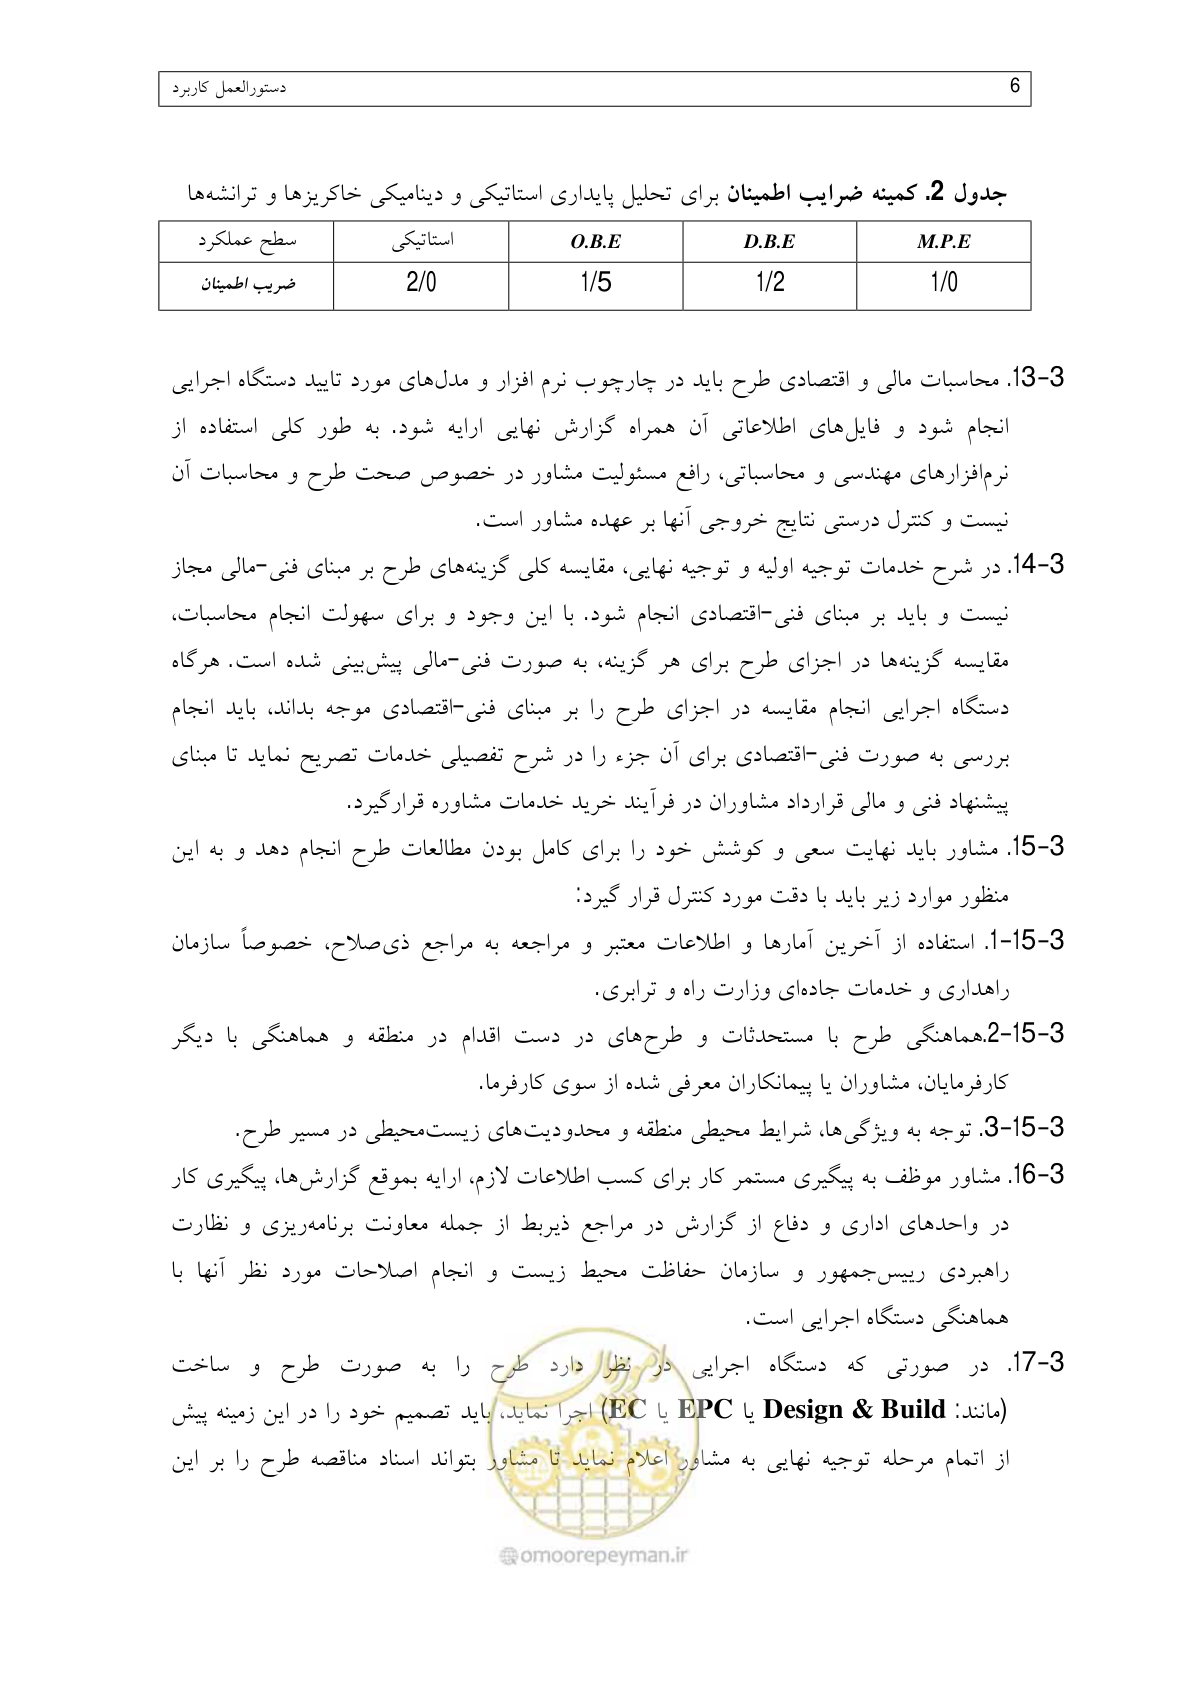 6 دستورالعمل کاربرد
جدول 2. کمینه ضرایب اطمینان برای تحلیل پایداری استاتیکی و دینامیکی خاکریزها و ترانشه‌ها
سطح عملکرد استاتیکی O.B.E D.B.E M.P.E
ضریب اطمینان 2/0 1/5 1/2 1/0
13-3. محاسبات مالی و اقتصادی طرح باید در چارچوب نرم افزار و مدل‌های مورد تایید دستگاه اجرایی
انجام شود و فایل‌های اطلاعاتی آن همراه گزارش نهایی ارایه شود. به طور کلی استفاده از
نرم‌افزارهای مهندسی و محاسباتی، رافع مسئولیت مشاور در خصوص صحت طرح و محاسبات آن
نیست و کنترل درستی نتایج خروجی آنها بر عهده مشاور است.
14-3. در شرح خدمات توجیه اولیه و توجیه نهایی، مقایسه کلی گزینه‌های طرح بر مبنای فنی-مالی مجاز
نیست و باید بر مبنای فنی-اقتصادی انجام شود. با این وجود و برای سهولت انجام محاسبات،
مقایسه گزینه‌ها در اجزای طرح برای هر گزینه، به صورت فنی-مالی پیش‌بینی شده است. هرگاه
دستگاه اجرایی انجام مقایسه در اجزای طرح را بر مبنای فنی-اقتصادی موجه بداند، باید انجام
بررسی به صورت فنی-اقتصادی برای آن جزء را در شرح تفصیلی خدمات تصریح نماید تا مبنای
پیشنهاد فنی و مالی قرارداد مشاوران در فرآیند خرید خدمات مشاوره قرارگیرد.
15-3. مشاور باید نهایت سعی و کوشش خود را برای کامل بودن مطالعات طرح انجام دهد و به این
منظور موارد زیر باید با دقت مورد کنترل قرار گیرد:
1-15-3. استفاده از آخرین آمارها و اطلاعات معتبر و مراجعه به مراجع ذی‌صلاح، خصوصاً سازمان
راهداری و خدمات جاده‌ای وزارت راه و ترابری.
2-15-3.هماهنگی طرح با مستحدثات و طرح‌های در دست اقدام در منطقه و هماهنگی با دیگر
کارفرمایان، مشاوران یا پیمانکاران معرفی شده از سوی کارفرما.
3-15-3. توجه به ویژگی‌ها، شرایط محیطی منطقه و محدودیت‌های زیست‌محیطی در مسیر طرح.
16-3. مشاور موظف به پیگیری مستمر کار برای کسب اطلاعات لازم، ارایه بموقع گزارش‌ها، پیگیری کار
در واحدهای اداری و دفاع از گزارش در مراجع ذیربط از جمله معاونت برنامه‌ریزی و نظارت
راهبردی رییس‌جمهور و سازمان حفاظت محیط زیست و انجام اصلاحات مورد نظر آنها با
هماهنگی دستگاه اجرایی است.
17-3. در صورتی که دستگاه اجرایی در نظر دارد طرح را به صورت طرح و ساخت
(مانند: Design & Build یا EPC یا EC) اجرا نماید، باید تصمیم خود را در این زمینه پیش
از اتمام مرحله توجیه نهایی به مشاور اعلام نماید تا مشاور بتواند اسناد مناقصه طرح را بر این
امور پیمان
@omoorepeyman.ir